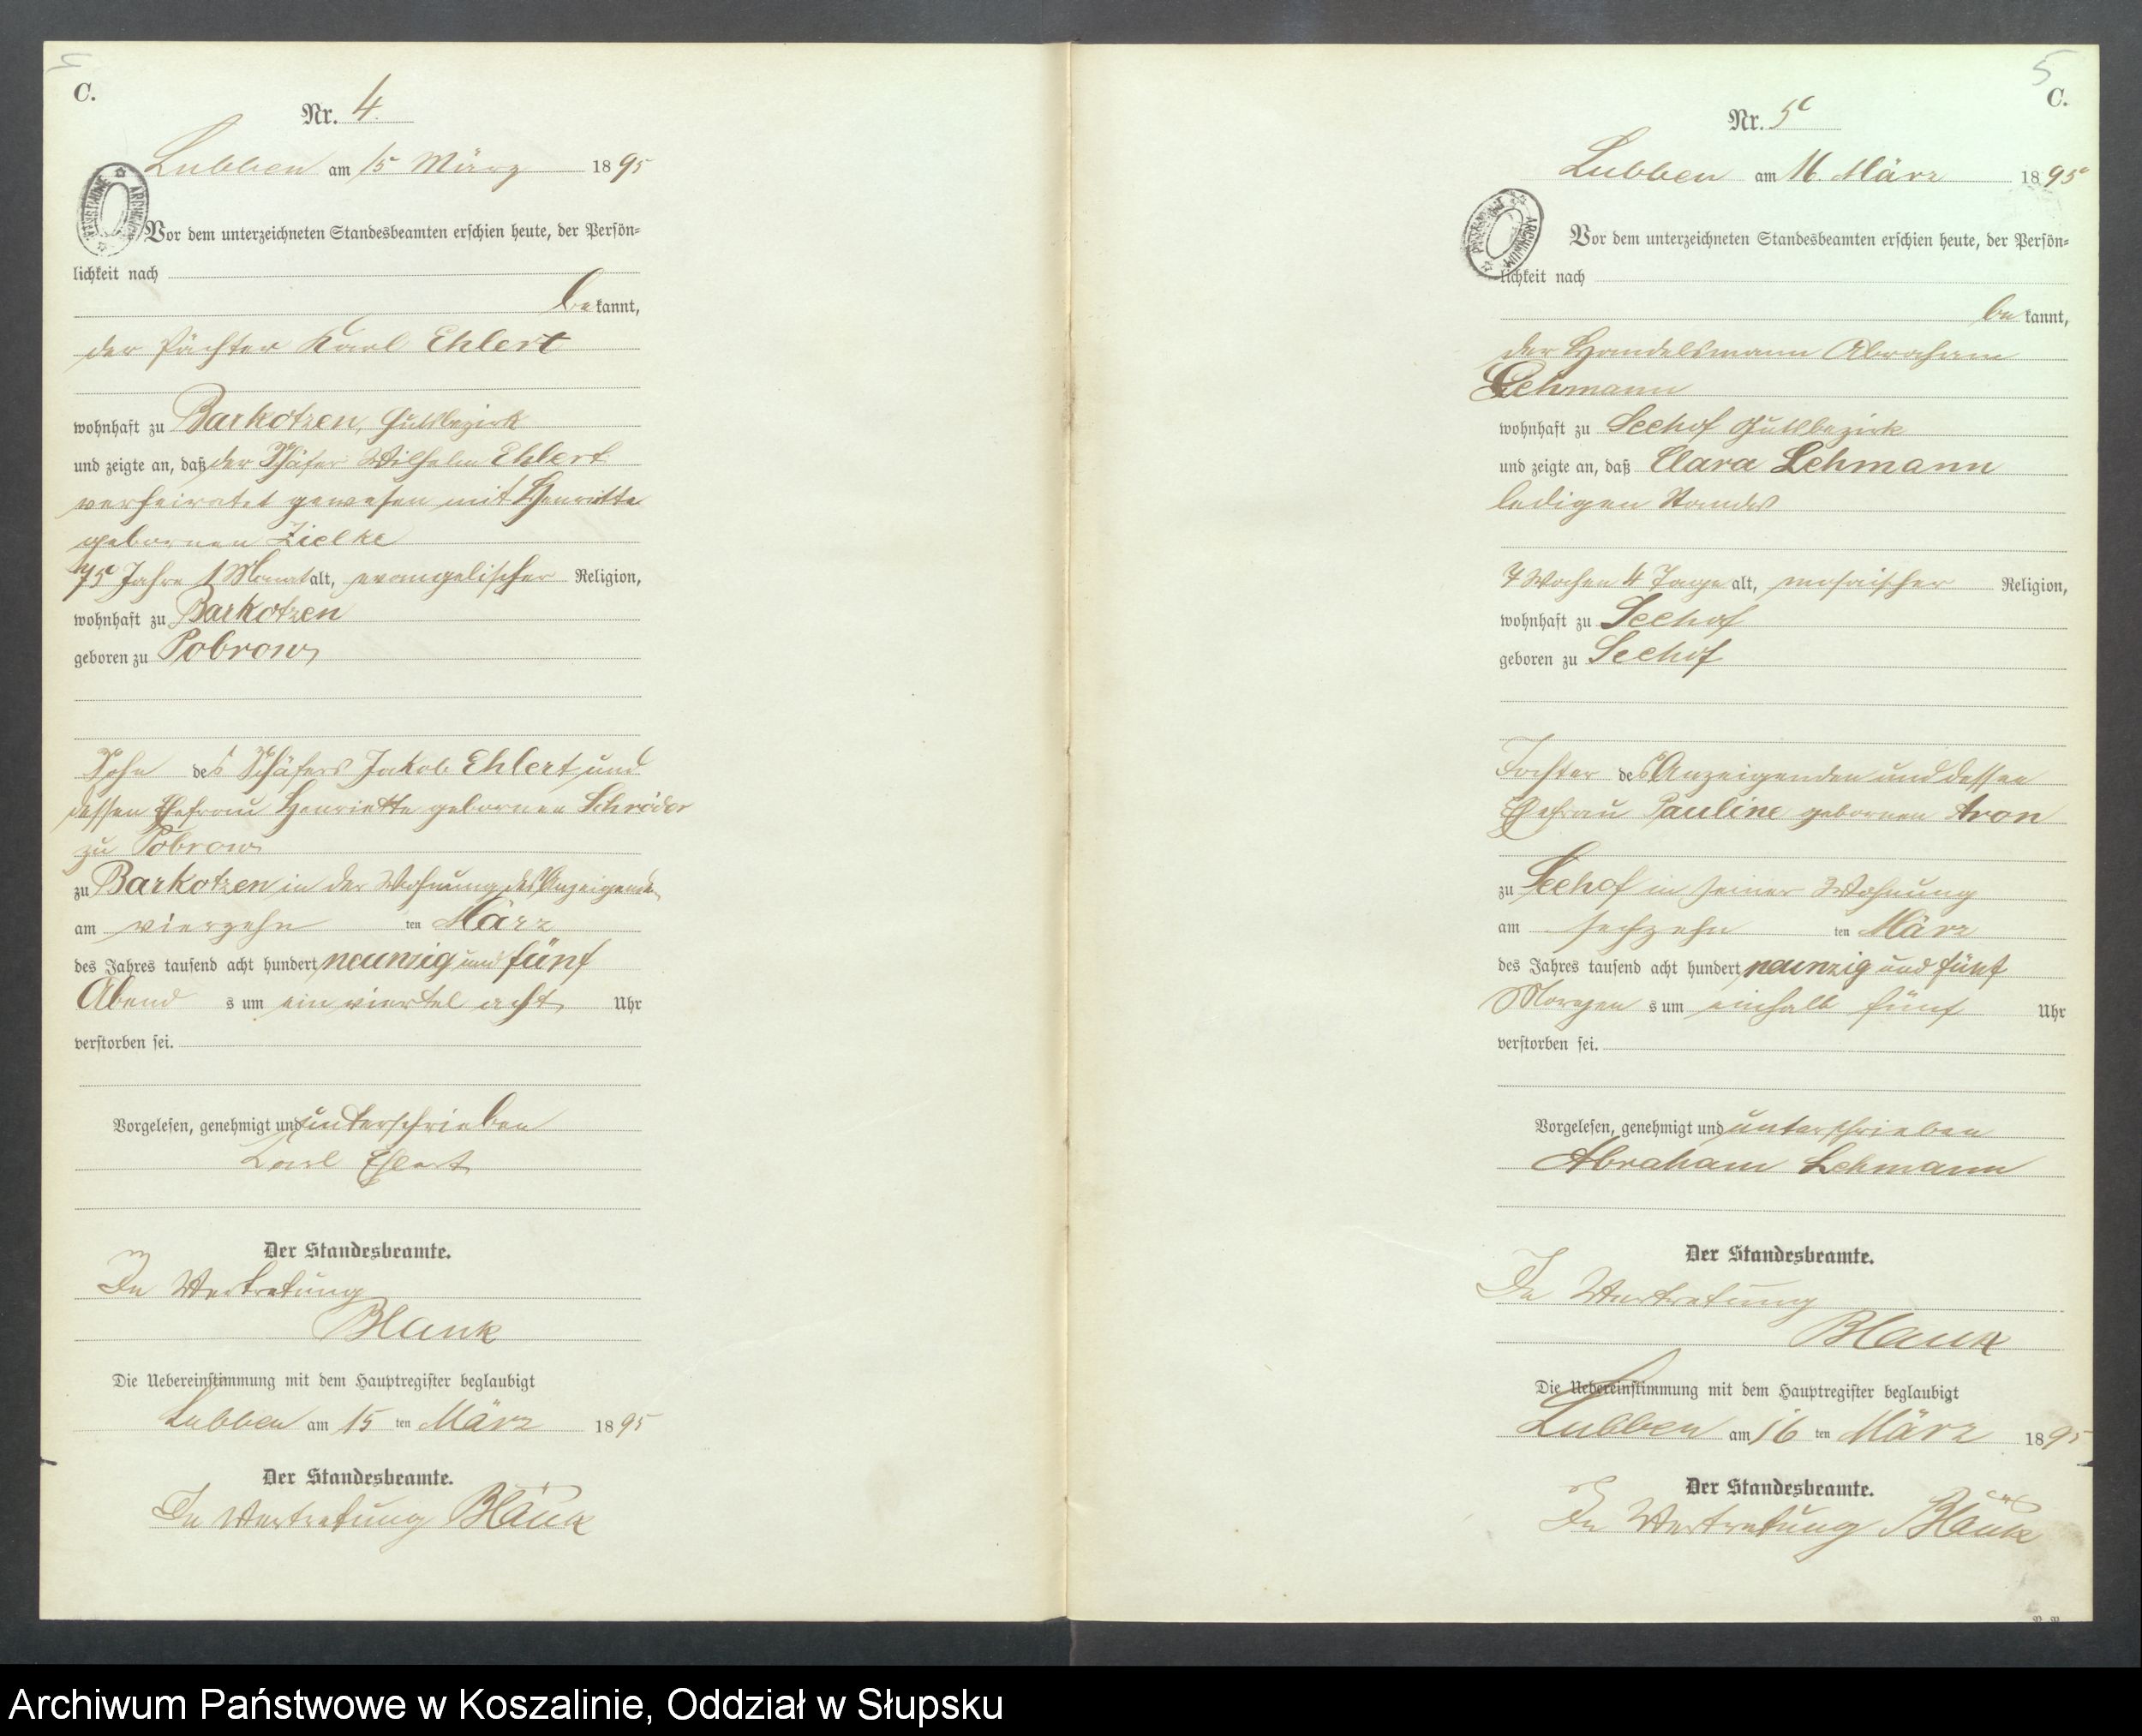 C.
Nr. 4.
Lubben am 15 März 1895
Vor dem unterzeichneten Standesbeamten erschien heute, der Persön=
lichkeit nach
bekannt,
der Pächter Karl Ehlert
wohnhaft zu Barkotzen, Gutsbezirk
und zeigte an, daß der Schäfer Wilhelm Ehlert
verheiratet gewesen mit Henriette
gebornen Zielke
75 Jahre 1 Monat alt, evangelischer Religion,
wohnhaft zu Barkotzen
geboren zu Pobrow
Sohn des Schäfers Jakob Ehlert und
dessen Ehefrau Henriette gebornen Schröder
zu Pobrow
zu Barkotzen in der Wohnung des Anzeigenden
am vierzehn ten März
des Jahres tausend acht hundert neunzig und fünf
Abend s um ein viertel acht Uhr
verstorben sei.
Vorgelesen, genehmigt und unterschrieben
Karl Ehlert
Der Standesbeamte.
In Vertretung
Blank
Die Uebereinstimmung mit dem Hauptregister beglaubigt
Lubben am 15 ten März 1895
Der Standesbeamte.
In Vertretung Blank
5
C.
Nr. 5
Lubben am 16. März 1895
Vor dem unterzeichneten Standesbeamten erschien heute, der Persön=
lichkeit nach
bekannt,
der Handelsmann Abraham
Lehmann
wohnhaft zu Seehof Gutsbezirk
und zeigte an, daß Clara Lehmann
ledigen Standes
7 Wochen 4 Tage alt, mosaischer Religion,
wohnhaft zu Seehof
geboren zu Seehof
Tochter des Anzeigenden und dessen
Ehefrau Pauline gebornen Aron
zu Seehof in seiner Wohnung
am sechzehn ten März
des Jahres tausend acht hundert neunzig und fünf
Morgen s um einhalb fünf Uhr
verstorben sei.
Vorgelesen, genehmigt und unterschrieben
Abraham Lehmann
Der Standesbeamte.
In Vertretung
Blank
Die Uebereinstimmung mit dem Hauptregister beglaubigt
Lubben am 16 ten März 1895
Der Standesbeamte.
In Vertretung Blank
Archiwum Państwowe w Koszalinie, Oddział w Słupsku